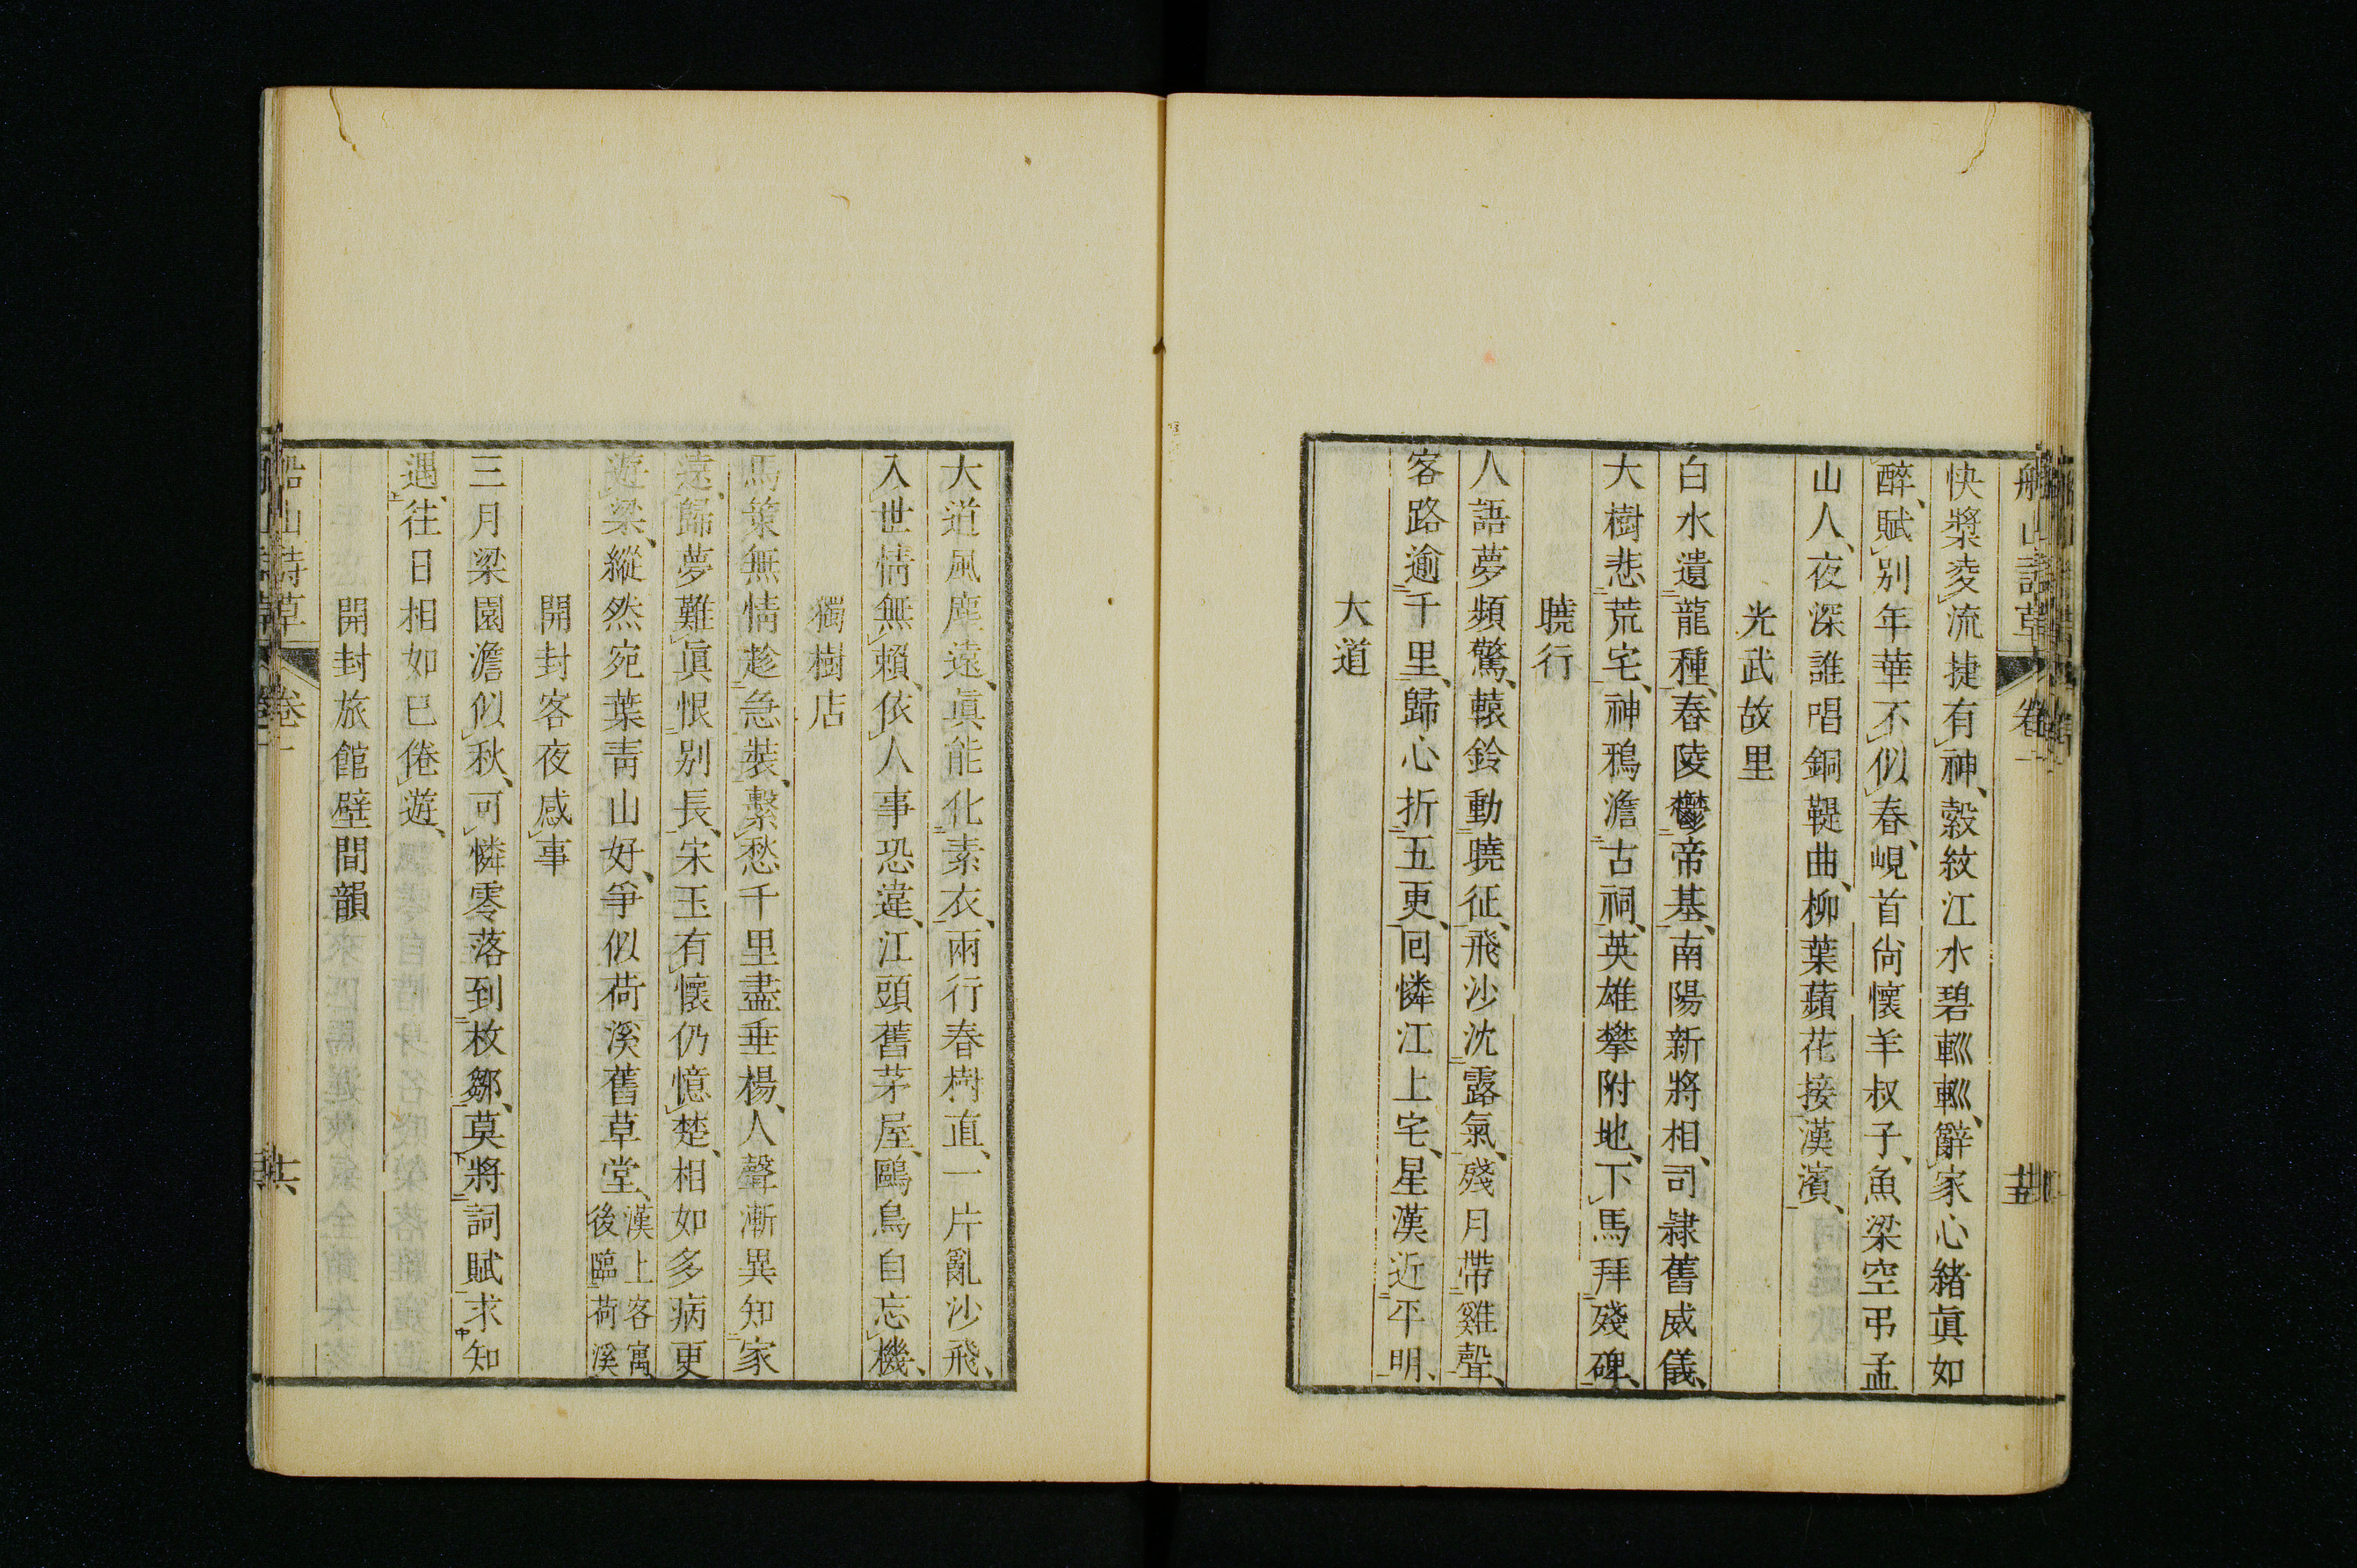 快槳凌流捷有神、縠紋江水碧粼粼、辭家心緒眞如
醉、賦別年華不似春、峴首尙懷羊叔子、魚梁空弔孟
山人、夜深誰唱銅鞮曲、柳葉蘋花接漢濱、
光武故里
白水遺龍種、舂陵鬱帝基、南陽新將相、司隸舊威儀、
大樹悲荒宅、神鴉澹古祠、英雄攀附地、下馬拜殘碑、
曉行
人語夢頻驚、轅鈴動曉征、飛沙沈露氣、殘月帶雞聲、
客路逾千里、歸心折五更、回憐江上宅、星漢近平明、
大道
大道風塵遠、眞能化素衣、兩行春樹直、一片亂沙飛、
入世情無賴、依人事恐違、江頭舊茅屋、鷗鳥自忘機、
獨樹店
馬策無情趁急裝、繫愁千里盡垂楊、人聲漸異知家
遠、歸夢難眞恨別長、宋玉有懷仍憶楚、相如多病更
遊梁、縱然宛葉靑山好、爭似荷溪舊草堂、漢上客寓
後臨荷溪
開封客夜感事
三月梁園澹似秋、可憐零落到枚鄒、莫將詞賦求知
遇、往日相如已倦遊、
開封旅館壁間韻
船山詩草 卷一 六